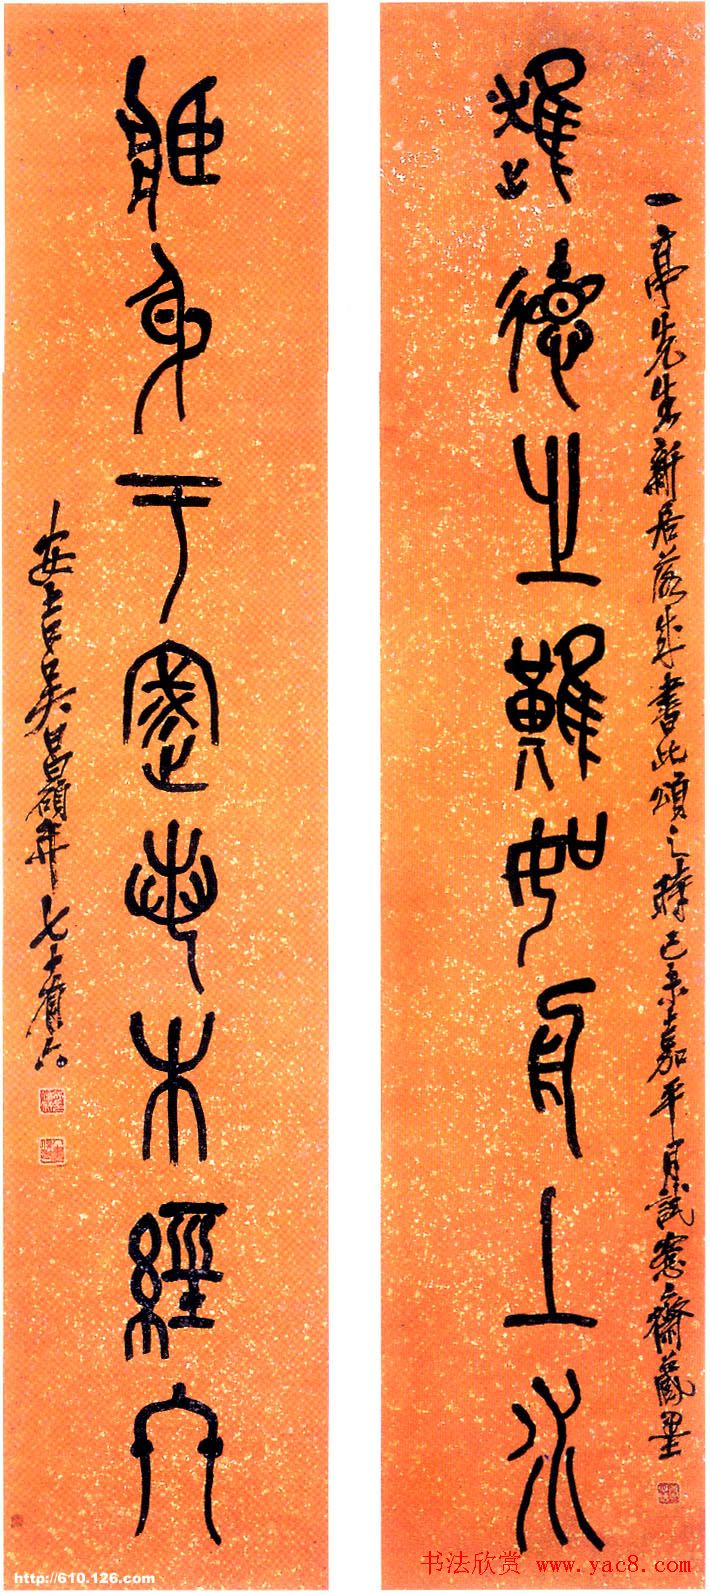 一亭先生新居落成書此頌之時己未嘉平月試愙齋藏墨
進德之難如舟上水
身于若木經冬
安吉吳昌碩年七十有六
http://610.126.com
书法欣赏 www.yac8.com